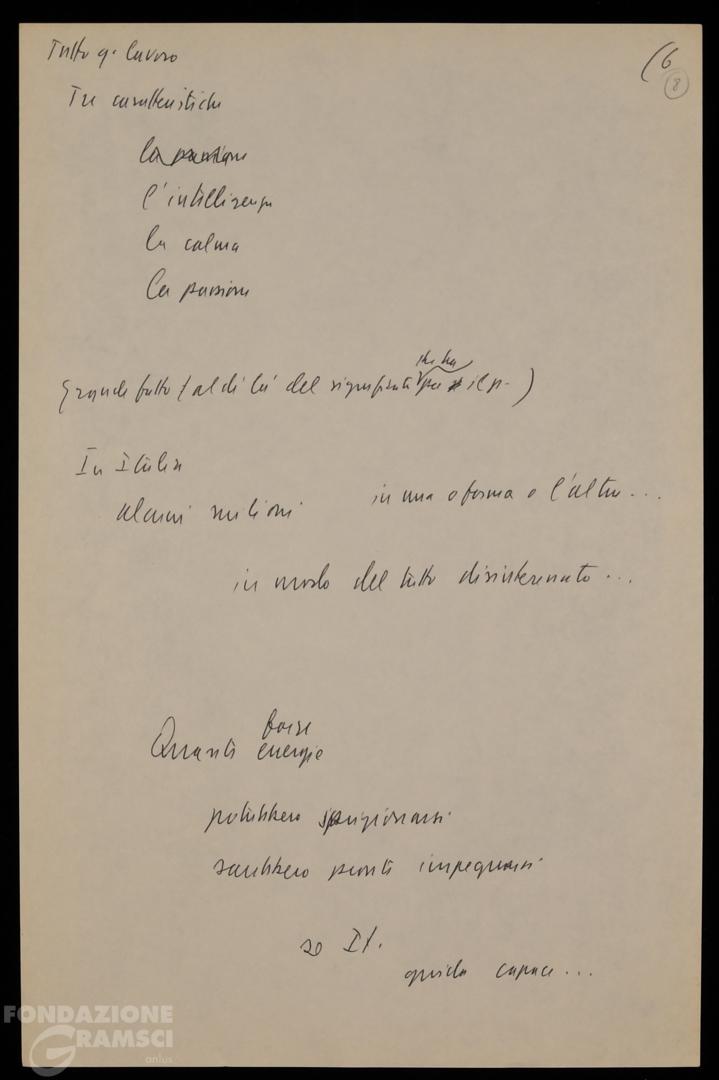 Tutto q. lavoro
(6
8
Tre caratteristiche
la passione
l'intelligenza
la calma
La passione
che ha
Grande fatto (al di là del significato per il p. )
In Italia
alcuni milioni in una o forma o l'altra...
in modo del tutto disinteressato...
forze
Quante energie
potrebbero sprigionarsi
sarebbero pronte impegnarsi
se It.
guida capace...
FONDAZIONE
GRAMSCI
onlus